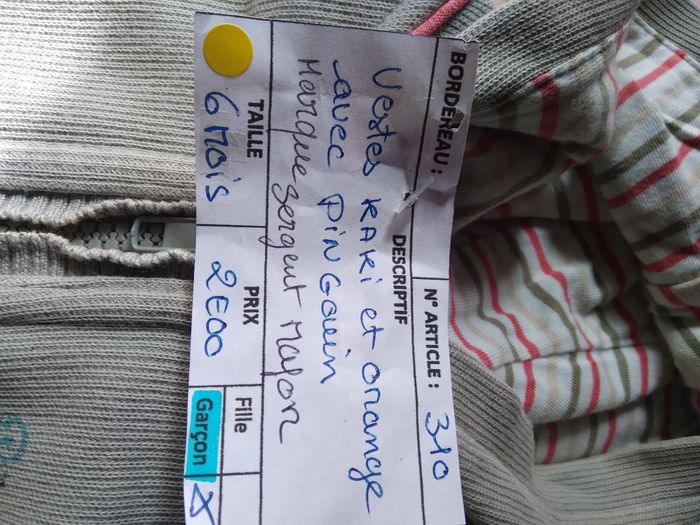 BORDEREAU :
N° ARTICLE : 310
DESCRIPTIF
Vestes KAKi et orange
avec PiNGouin
Marque sergent Major
TAILLE
6 MOIS
PRIX
2E00
Fille
Garçon X